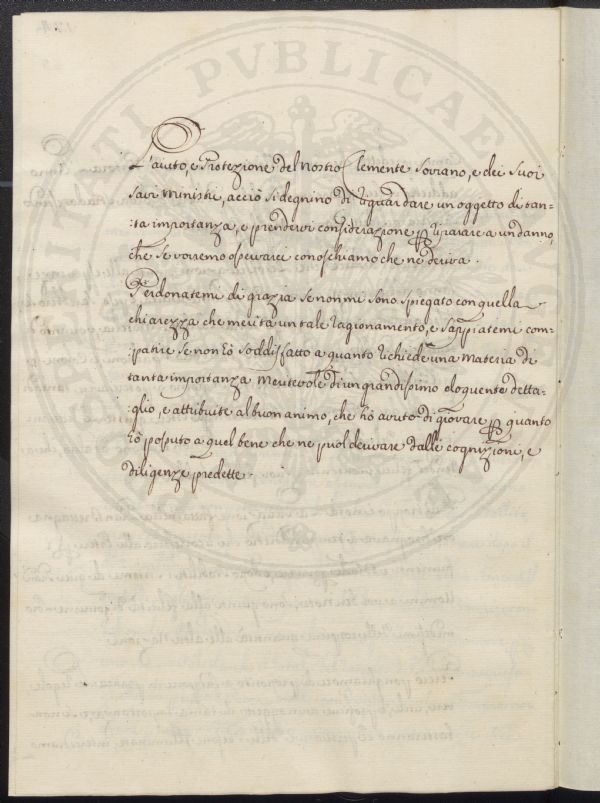 L'aiuto, e Protezione del nostro Clemente Sovrano, e dei suoi
savi Ministri, acciò si degnino di riguardare un oggetto di tan-
:ta importanza, e prendervi considerazione riparare a un danno,
che se vorremo osservare conoschiamo che ne deriva.
Perdonatemi di grazia se non mi sono spiegato con quella
chiarezza che merita un tale ragionamento, e sappiatemi com=
patire se non hò soddisfatto a quanto richiede una materia di
tanta importanza meritevole di un grandissimo eloquente detta=
glio, e attribuite al buon animo, che hò avuto di giovare quanto
hò possuto a quel bene che ne puol derivare dalle cognizioni, e
diligenze predette.
PVBLICAE